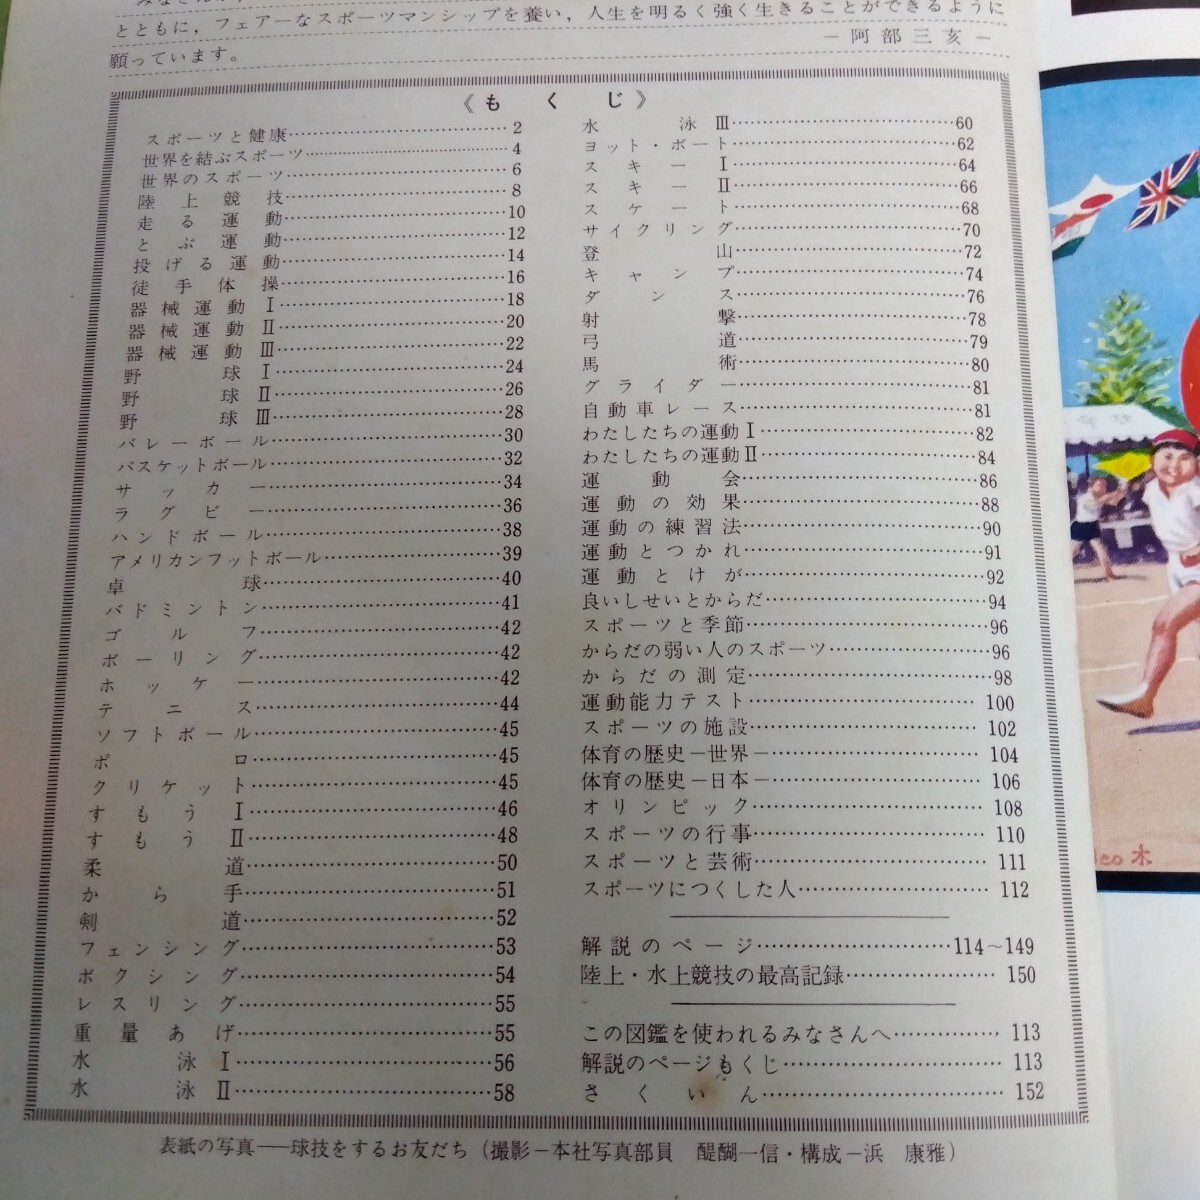 とともに，フェアーなスポーツマンシップを養い，人生を明るく強く生きることができるように
願っています。
－阿部三亥－
《もくじ》
スポーツと健康……2
世界を結ぶスポーツ……4
世界のスポーツ……6
陸上競技……8
走る運動……10
とぶ運動……12
投げる運動……14
徒手体操……16
器械運動Ⅰ……18
器械運動Ⅱ……20
器械運動Ⅲ……22
野球Ⅰ……24
野球Ⅱ……26
野球Ⅲ……28
バレーボール……30
バスケットボール……32
サッカー……34
ラグビー……36
ハンドボール……38
アメリカンフットボール……39
卓球……40
バドミントン……41
ゴルフ……42
ボーリング……42
ホッケー……42
テニス……44
ソフトボール……45
ポロ……45
クリケット……45
すもうⅠ……46
すもうⅡ……48
柔道……50
から手……51
剣道……52
フェンシング……53
ボクシング……54
レスリング……55
重量あげ……55
水泳Ⅰ……56
水泳Ⅱ……58
水泳Ⅲ……60
ヨット・ボート……62
スキーⅠ……64
スキーⅡ……66
スケート……68
サイクリング……70
登山……72
キャンプ……74
ダンス……76
射撃……78
弓道……79
馬術……80
グライダー……81
自動車レース……81
わたしたちの運動Ⅰ……82
わたしたちの運動Ⅱ……84
運動会……86
運動の効果……88
運動の練習法……90
運動とつかれ……91
運動とけが……92
良いしせいとからだ……94
スポーツと季節……96
からだの弱い人のスポーツ……96
からだの測定……98
運動能力テスト……100
スポーツの施設……102
体育の歴史－世界－……104
体育の歴史－日本－……106
オリンピック……108
スポーツの行事……110
スポーツと芸術……111
スポーツにつくした人……112
解説のページ……114～149
陸上・水上競技の最高記録……150
この図鑑を使われるみなさんへ……113
解説のページもくじ……113
さくいん……152
表紙の写真――球技をするお友だち（撮影－本社写真部員　醍醐一信・構成－浜　康雅）